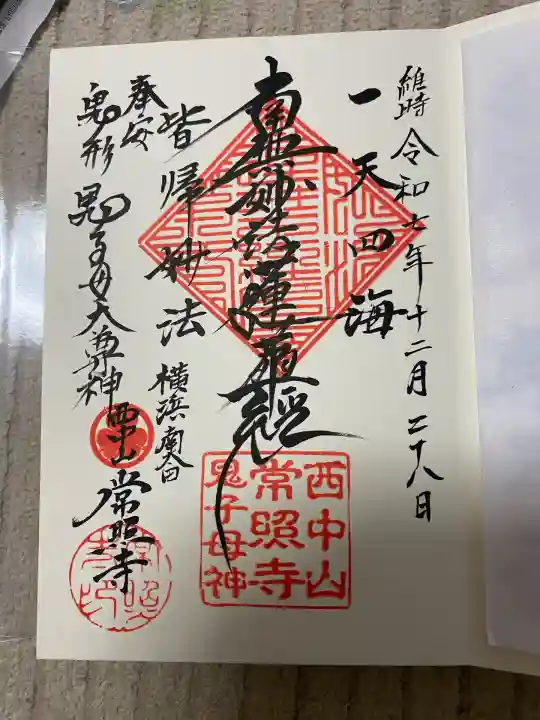 維時 令和七年十二月二十八日
一天四海
南無妙法蓮華經
皆歸妙法
横浜南太田
奉安
鬼形 鬼子母大尊神
西中山 常照寺
西中山
常照寺
鬼子母神